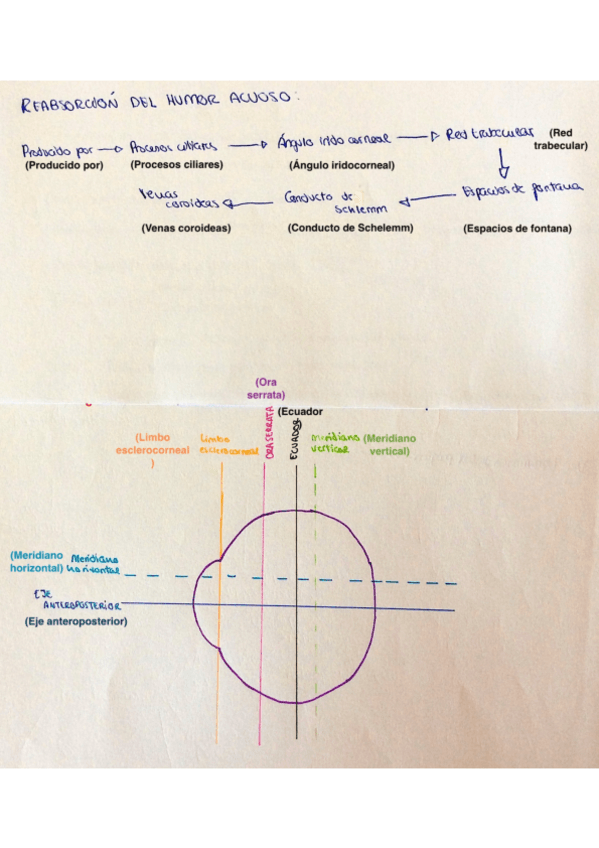 REABSORCIÓN DEL HUMOR ACUOSO:
Producido por → Procesos ciliares → Ángulo irido corneal → Red trabecular (Red
trabecular)
(Producido por) (Procesos ciliares) (Ángulo iridocorneal)
Venas
coroideas ← Conducto de
Schlemm ← Espacios de fontana
(Venas coroideas) (Conducto de Schelemm) (Espacios de fontana)
(Ora
serrata)
ORA SERRATA
(Ecuador
ECUADOR
(Limbo
esclerocorneal
)
Limbo
esclerocorneal
Meridiano
vertical
(Meridiano
vertical)
(Meridiano
horizontal)
Meridiano
horizontal
EJE
ANTEROPOSTERIOR
(Eje anteroposterior)